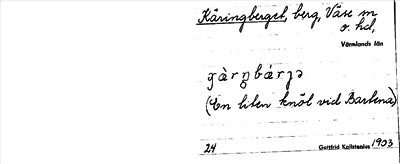 Käringberget, berg, Väse sn
o. hd,
Värmlands län
(En liten knöl vid Bartena)
24 Gottfrid Kallstenius 1903